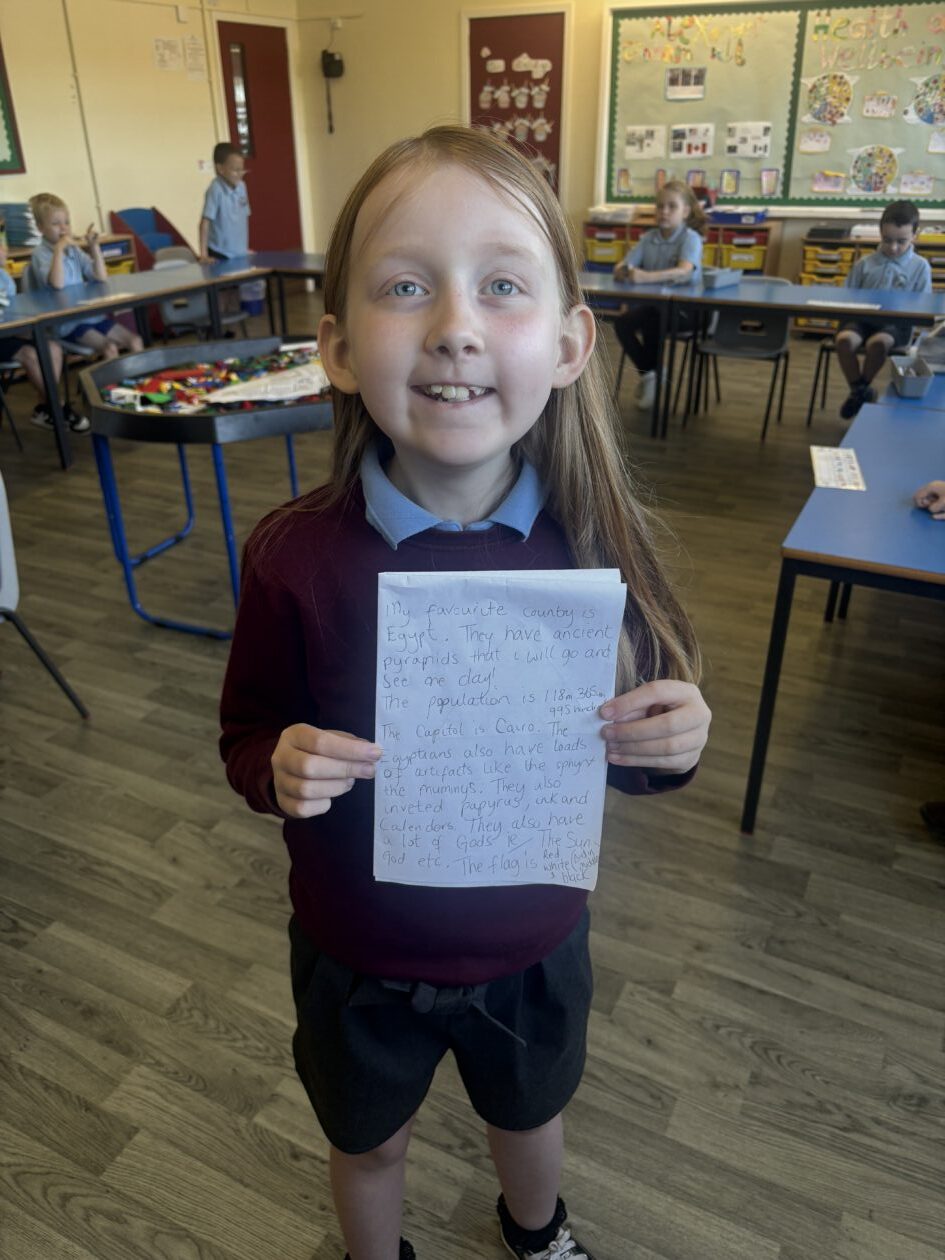 My favourite country is
Egypt. They have ancient
pyrapids that i will go and
See one day!
The population is 118m 365
995 hundred
The Capitol is Cairo. The
Egyptians also have loads
of artifacts like the sphynx
the mummys. They also
inveted papyrus, ink and
Calendors. They also have
a lot of Gods ie The Sun
God etc. The flag is Red
white
& black
Health &
Wellbeing